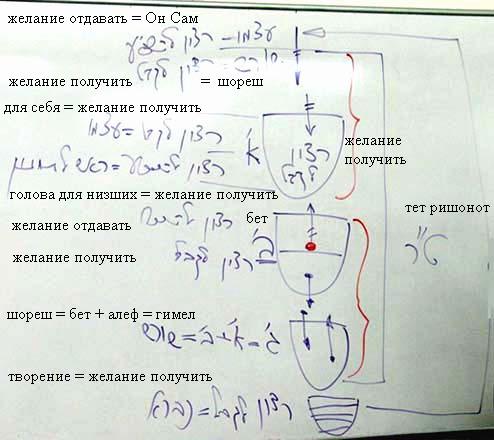 желание отдавать = Он Сам
עצמו – רצון להשפיע
רצון לקבל
желание получить = шореш
для себя = желание получить
רצון לקבל = עצמו
א'
רצון לקבל
желание получить
голова для низших = желание получить
желание отдавать
רצון להשפיע
бет
тет ришонот
ט"ר
желание получить
ב' רצון לקבל
шореш = бет + алеф = гимел
ג' = א' + ב' = שורש
творение = желание получить
רצון לקבל = נברא